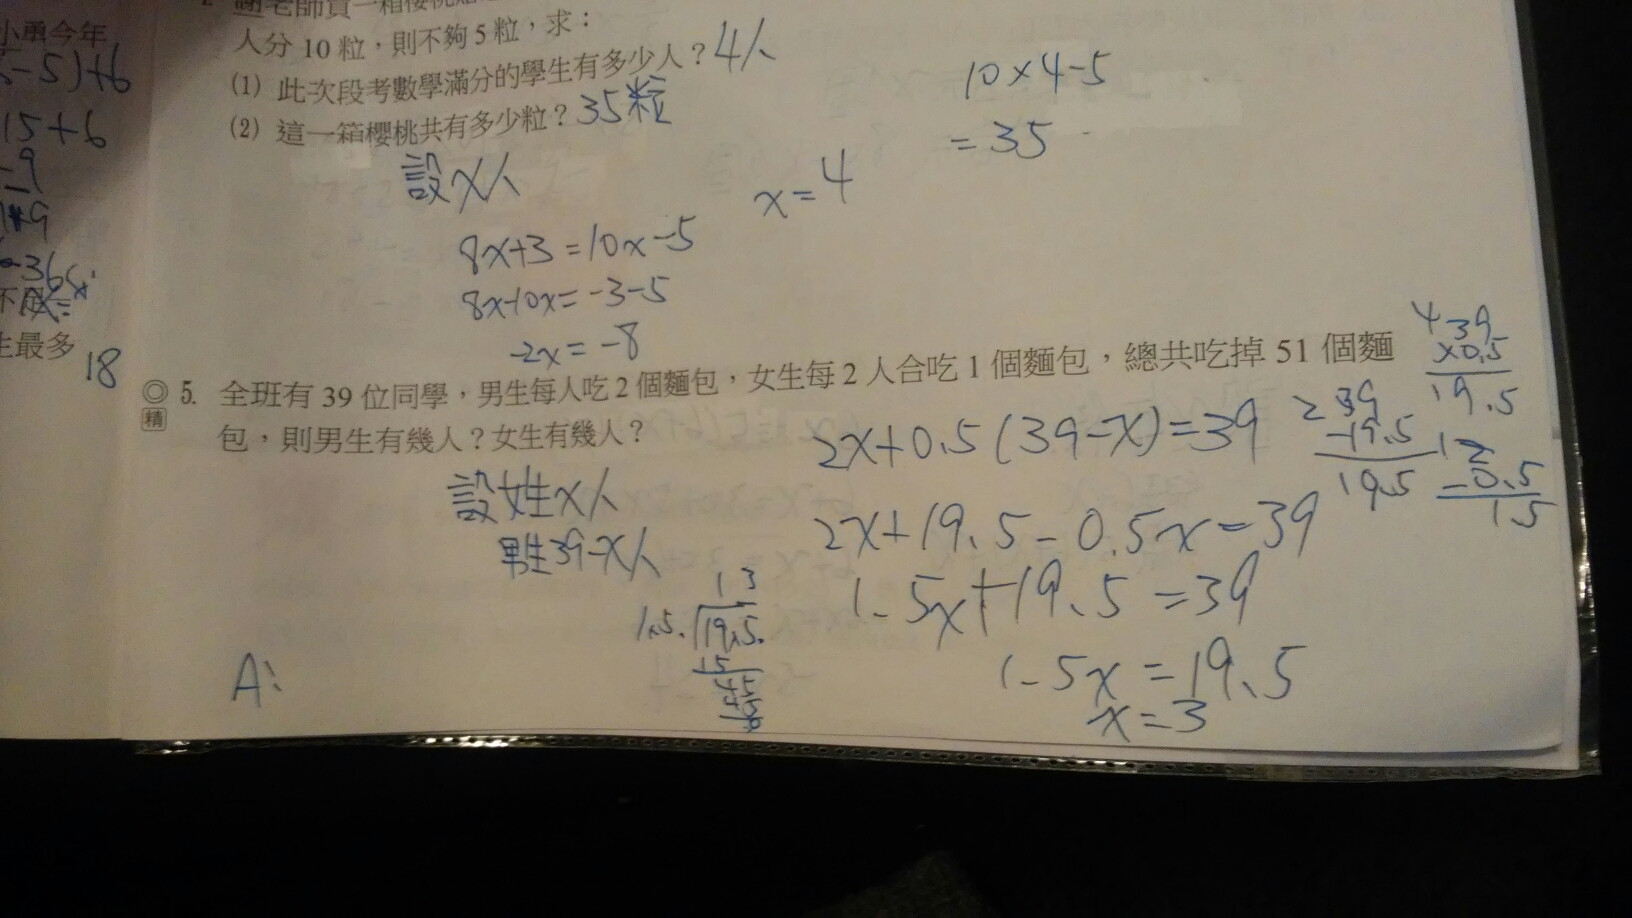 小勇今年
-5)+6
15+6
-9
謝老師買一箱櫻桃
人分 10 粒，則不夠 5 粒，求：
(1) 此次段考數學滿分的學生有多少人？4人
(2) 這一箱櫻桃共有多少粒？35粒
10×4-5
=35
設x人
x=4
8x+3=10x-5
8x-10x=-3-5
-2x=-8
生最多
18
◎ 5. 全班有 39 位同學，男生每人吃 2 個麵包，女生每 2 人合吃 1 個麵包，總共吃掉 51 個麵
精 包，則男生有幾人？女生有幾人？
設女生x人
男生39-x人
2x+0.5(39-x)=39
2x+19.5-0.5x=39
1.5x+19.5=39
1.5x=19.5
x=3
39
×0.5
19.5
39
-19.5
19.5
2
-0.5
1.5
13
1.5 19.5
15
45
45
0
A: